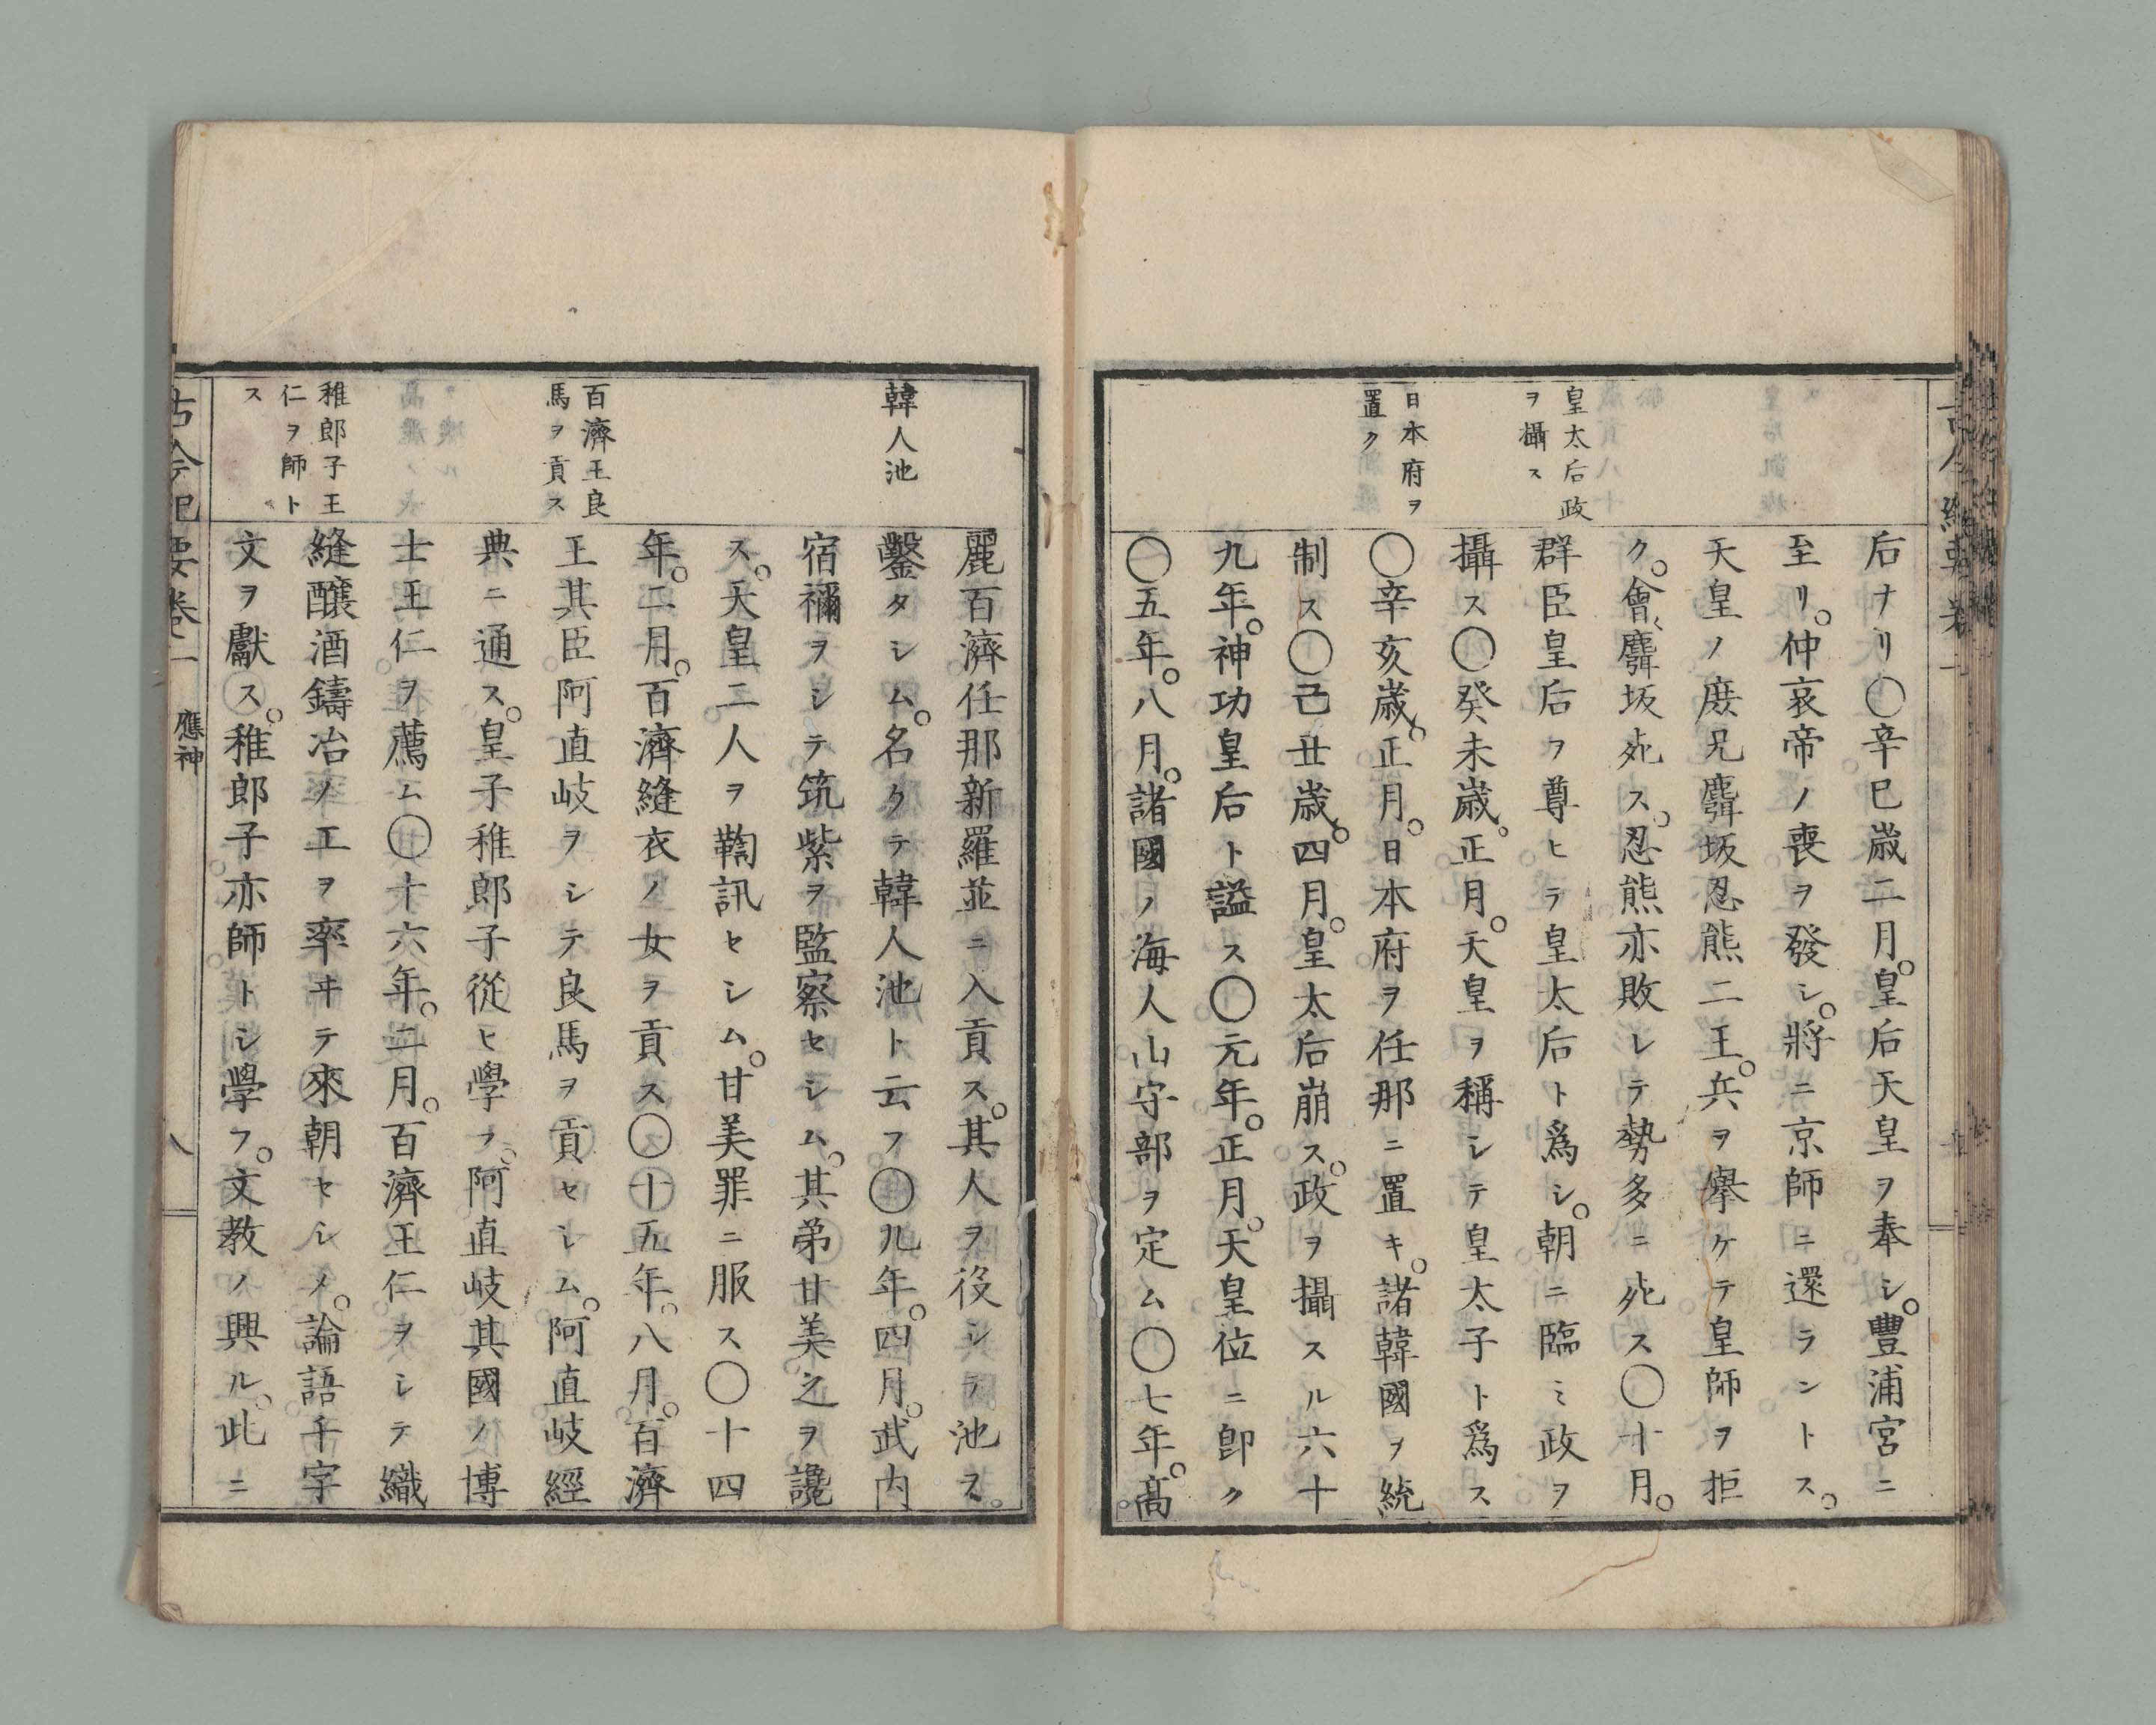 皇太后政
ヲ攝ス
日本府ヲ
置ク
后ナリ〇辛巳歳二月。皇后天皇ヲ奉シ。豐浦宮ニ
至リ。仲哀帝ノ喪ヲ發シ。將ニ京師ニ還ラントス。
天皇ノ庶兄麛坂忍熊二王。兵ヲ擧ケテ皇師ヲ拒
ク。會〻麛坂死ス。忍熊亦敗レテ勢多ニ死ス〇十月。
群臣皇后ヲ尊ヒテ皇太后ト爲シ。朝ニ臨ミ政ヲ
攝ス〇癸未歳。正月。天皇ヲ稱シテ皇太子ト爲ス
〇辛亥歳。正月。日本府ヲ任那ニ置キ。諸韓國ヲ統
制ス〇己丑歳。四月。皇太后崩ス。政ヲ攝スル六十
九年。神功皇后ト謚ス〇元年。正月。天皇位ニ卽ク
〇五年。八月。諸國ノ海人山守部ヲ定ム〇七年。高
韓人池
百濟王良
馬ヲ貢ス
稚郎子王
仁ヲ師ト
ス
麗百濟任那新羅並ニ入貢ス。其人ヲ役シテ池ヲ。
鑿タシム。名クテ韓人池ト云フ〇九年。四月。武内
宿禰ヲシテ筑紫ヲ監察セシム。其弟甘美之ヲ讒
ス。天皇二人ヲ鞫訊セシム。甘美罪ニ服ス〇十四
年。二月。百濟縫衣ノ女ヲ貢ス〇十五年。八月。百濟
王其臣阿直岐ヲシテ良馬ヲ貢セシム。阿直岐經
典ニ通ス。皇子稚郎子從ヒ學フ。阿直岐其國ノ博
士王仁ヲ薦ム〇十六年。二月。百濟王仁ヲシテ織
縫釀酒鑄冶ノ工ヲ率ヰテ來朝セシメ。論語千字
文ヲ獻ス。稚郎子亦師トシ學フ。文教ノ興ル。此ニ
古今紀要卷一
應神
八